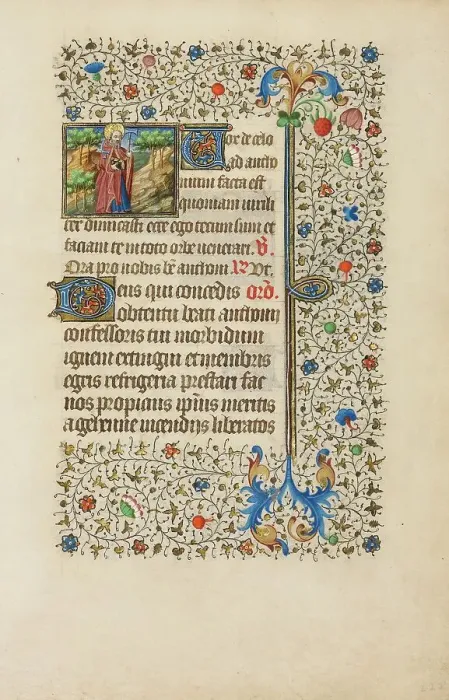 Vox de celo
ad antho
nium facta est
quoniam virili
ter dimicasti ecce ego tecum sum et
faciam te in toto orbe venerari. V̷.
Ora pro nobis b̄e anthoni R̷ Vt.
Deus qui concedis oro̅.
obtentu beati anthonii
confessoris tui morbidum
ignem extingui et membris
egris refrigeria prestari fac
nos propicius ip̄ius meritis
a gehenne incendijs liberatos